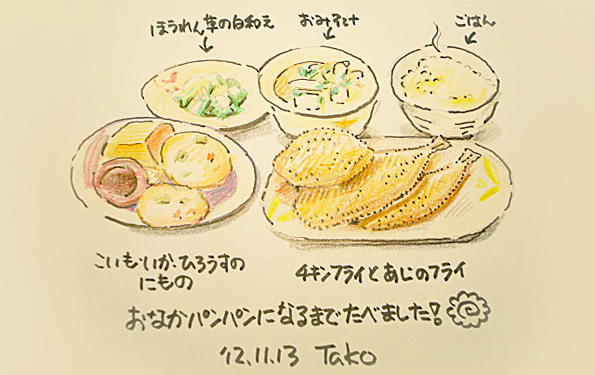 ほうれん草の白和え
おみそ汁
ごはん
こいも・いか・ひろうすの
にもの
チキンフライとあじのフライ
おなかパンパンになるまでたべました!
12.11.13 Tako